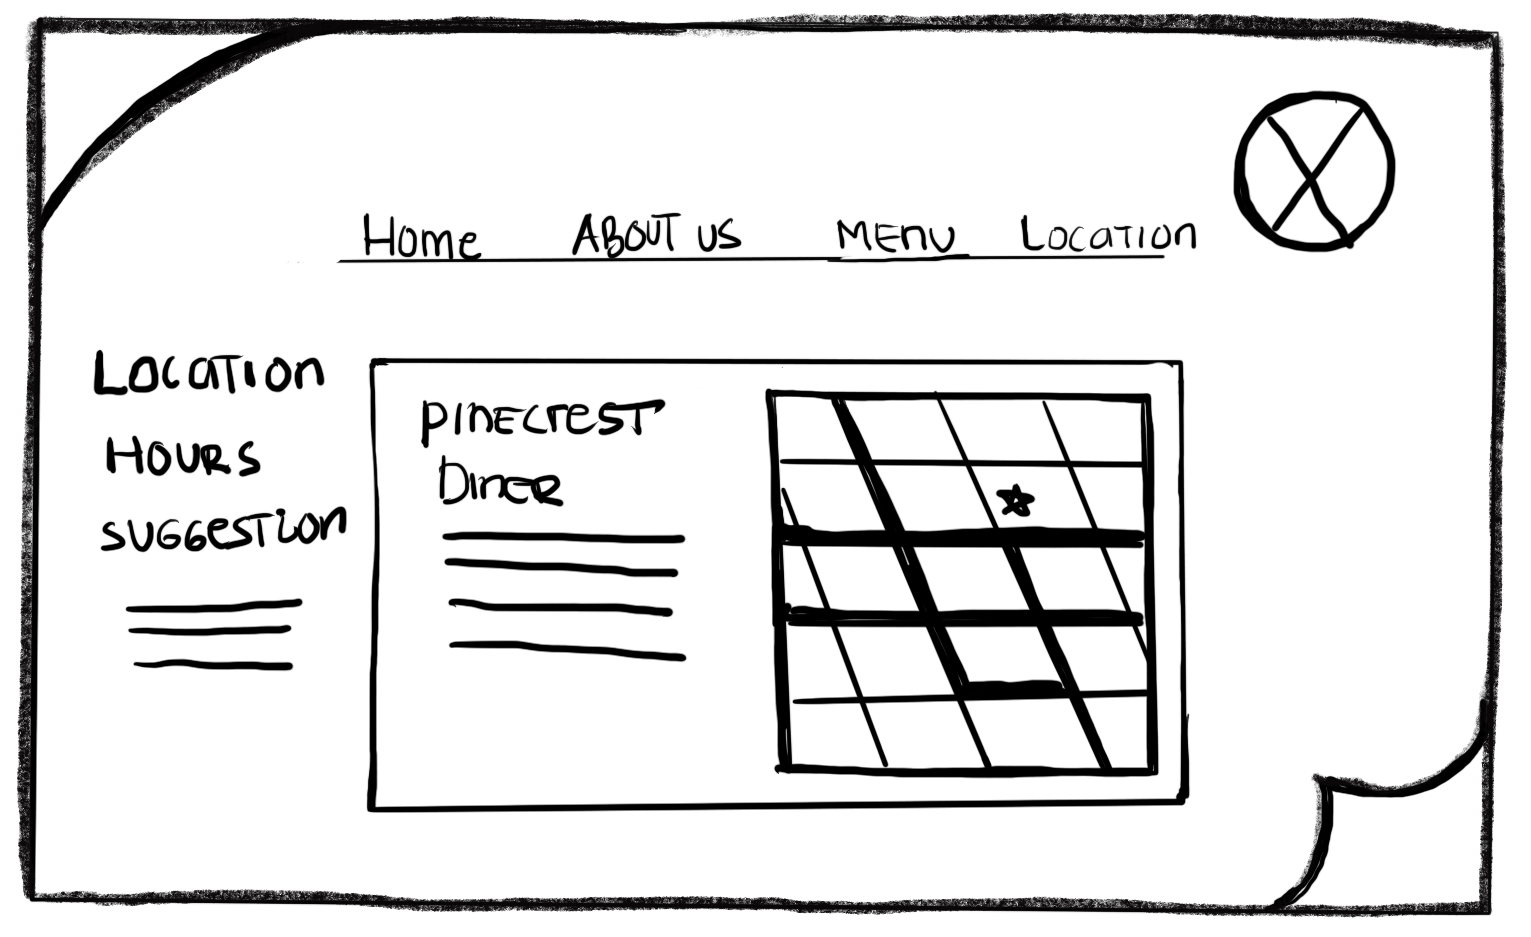 Home ABOUT US MENU LOCATION
LOCATION
HOURS
SUGGESTION
PINECREST
DINER